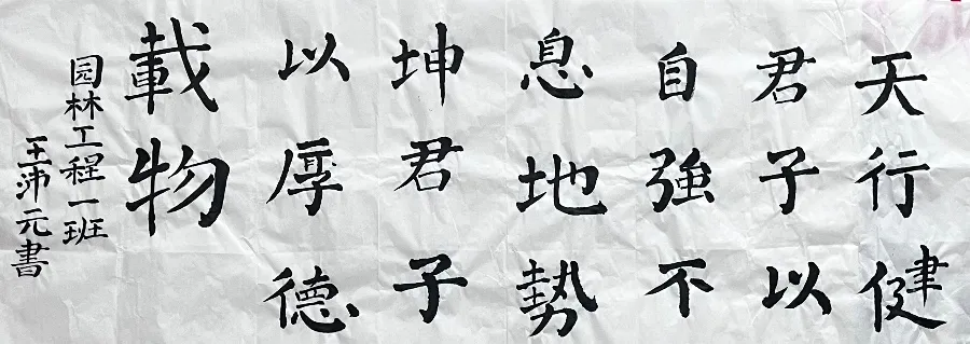 天行健
君子以
自強不
息地勢
坤君子
以厚德
載物
园林工程一班
王沛元書